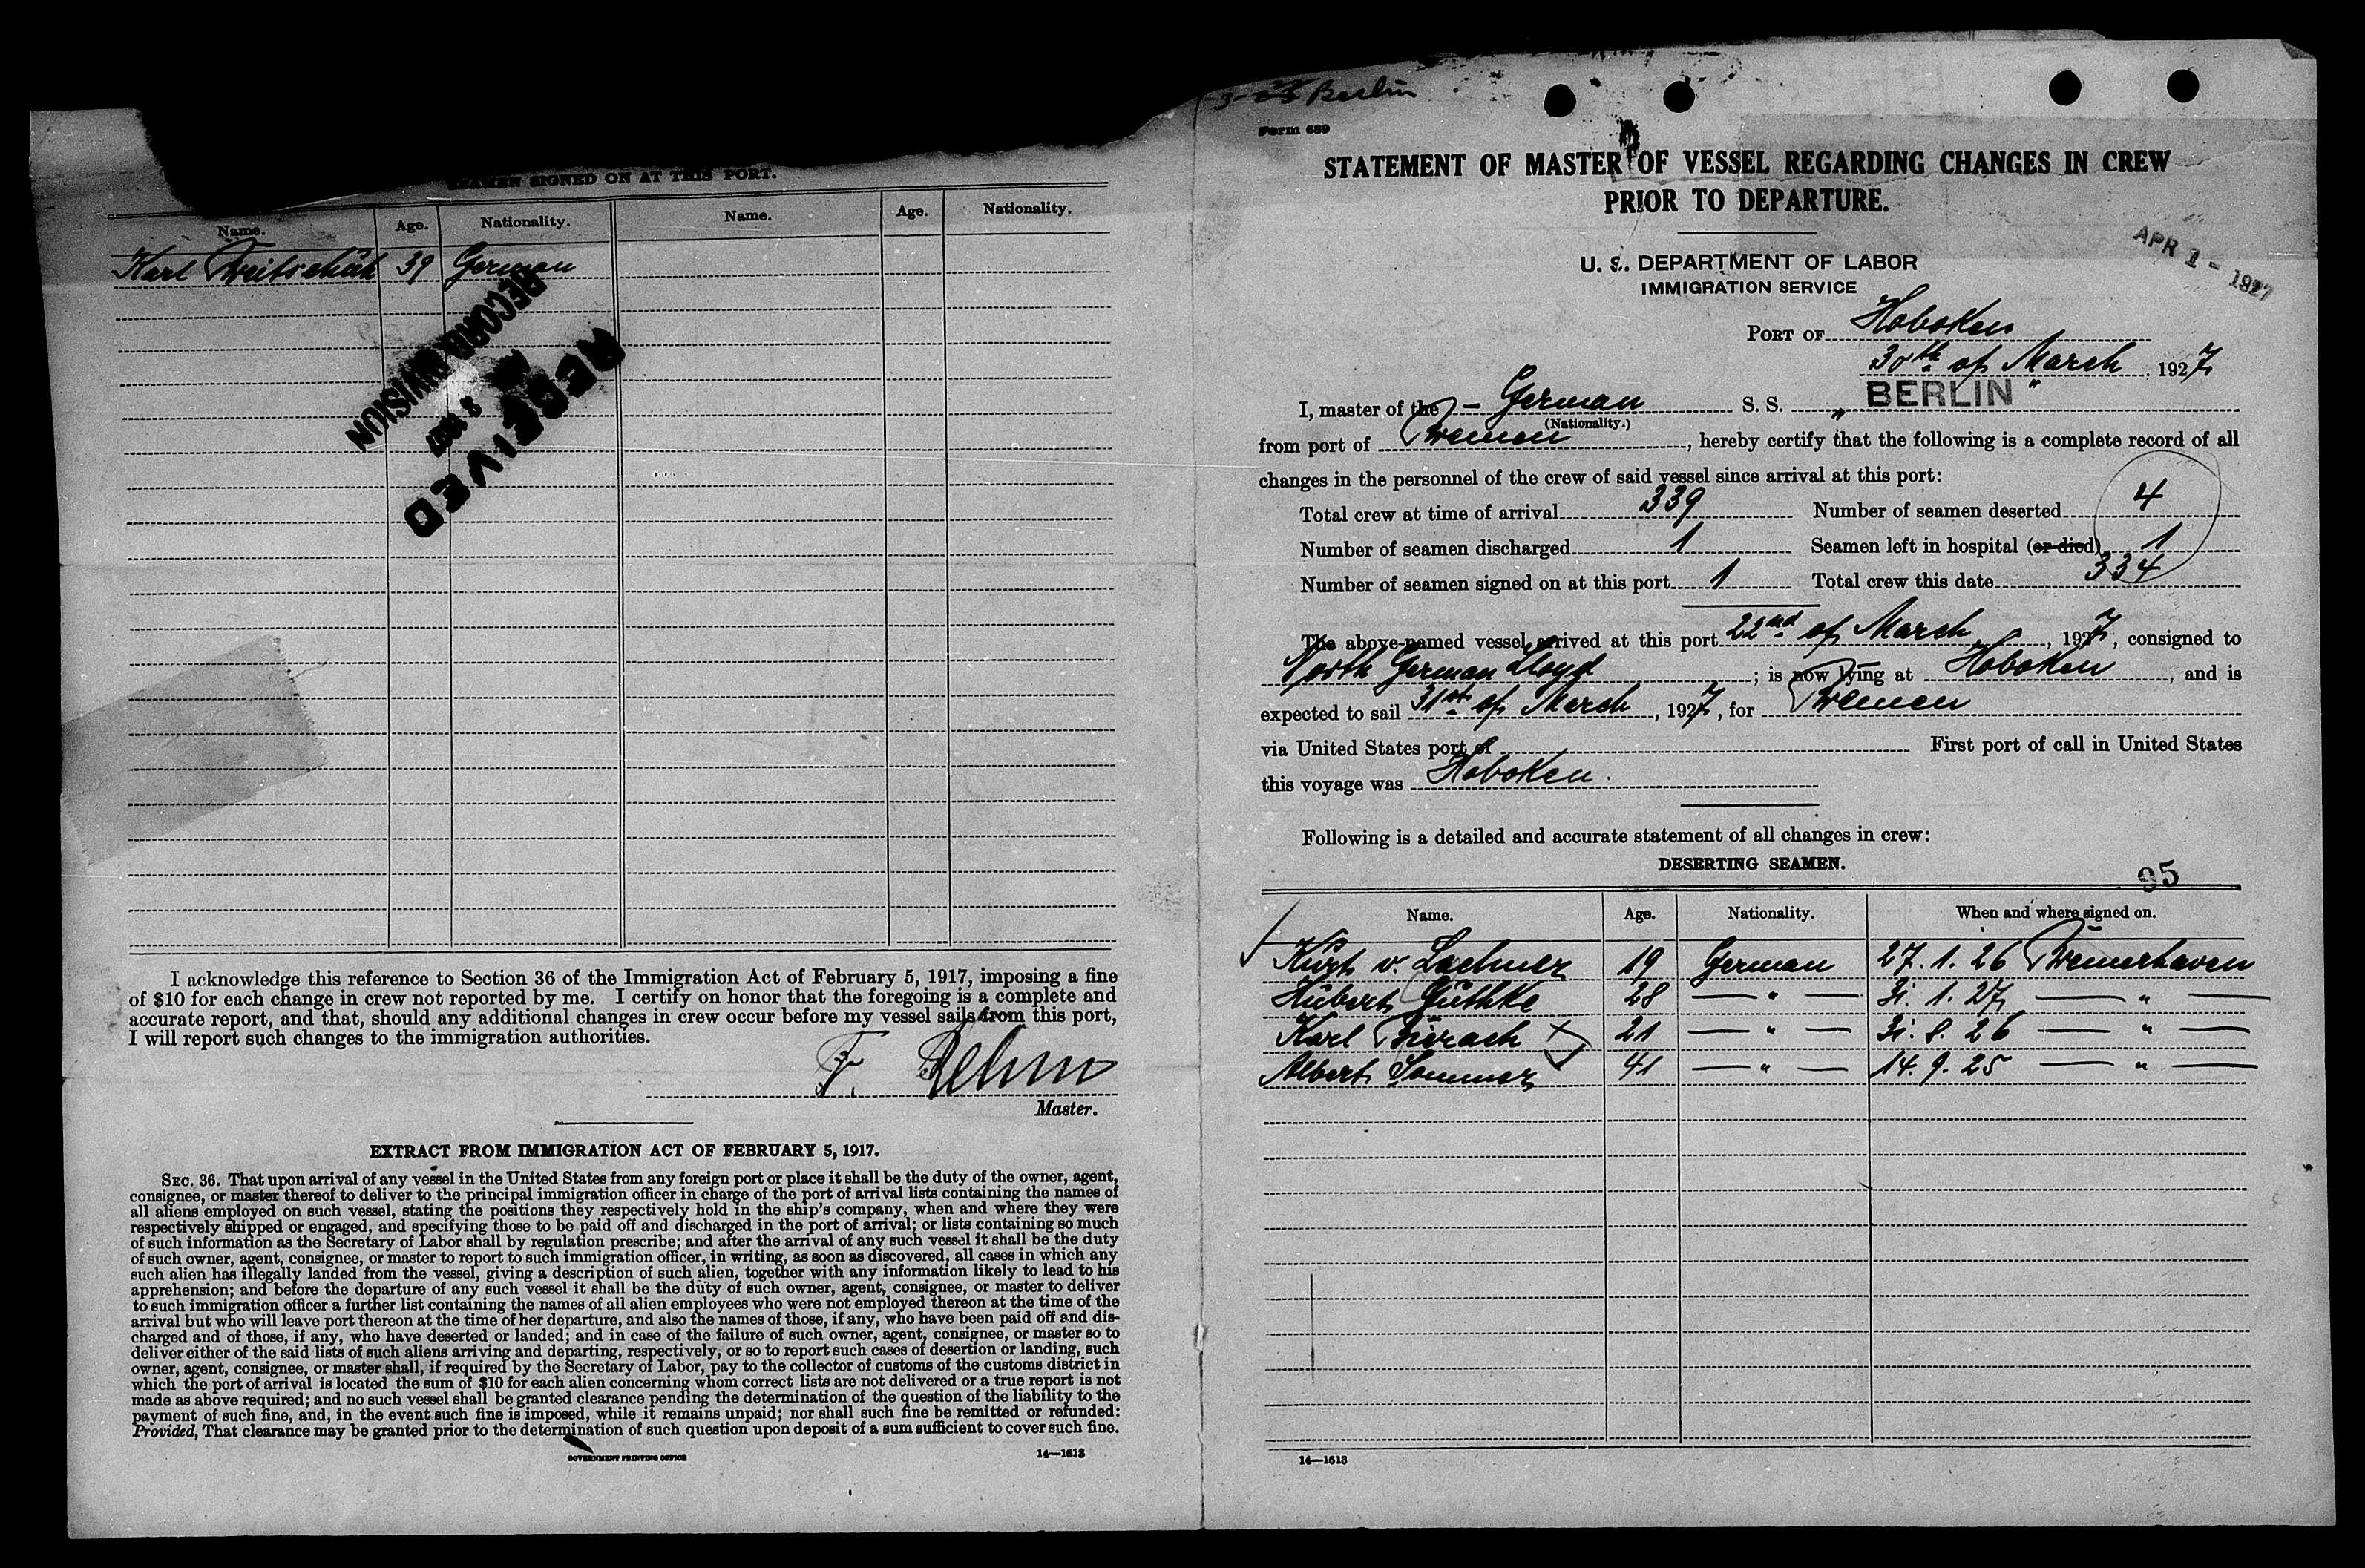 SEAMEN SIGNED ON AT THIS PORT.
Name. Age. Nationality. Name. Age. Nationality.
Karl 39 German
RECORD DIVISION
8 1927
RECEIVED
I acknowledge this reference to Section 36 of the Immigration Act of February 5, 1917, imposing a fine
of $10 for each change in crew not reported by me. I certify on honor that the foregoing is a complete and
accurate report, and that, should any additional changes in crew occur before my vessel sails from this port,
I will report such changes to the immigration authorities.
F.
Master.
EXTRACT FROM IMMIGRATION ACT OF FEBRUARY 5, 1917.
SEC. 36. That upon arrival of any vessel in the United States from any foreign port or place it shall be the duty of the owner, agent,
consignee, or master thereof to deliver to the principal immigration officer in charge of the port of arrival lists containing the names of
all aliens employed on such vessel, stating the positions they respectively hold in the ship's company, when and where they were
respectively shipped or engaged, and specifying those to be paid off and discharged in the port of arrival; or lists containing so much
of such information as the Secretary of Labor shall by regulation prescribe; and after the arrival of any such vessel it shall be the duty
of such owner, agent, consignee, or master to report to such immigration officer, in writing, as soon as discovered, all cases in which any
such alien has illegally landed from the vessel, giving a description of such alien, together with any information likely to lead to his
apprehension; and before the departure of any such vessel it shall be the duty of such owner, agent, consignee, or master to deliver
to such immigration officer a further list containing the names of all alien employees who were not employed thereon at the time of the
arrival but who will leave port thereon at the time of her departure, and also the names of those, if any, who have been paid off and dis-
charged and of those, if any, who have deserted or landed; and in case of the failure of such owner, agent, consignee, or master so to
deliver either of the said lists of such aliens arriving and departing, respectively, or so to report such cases of desertion or landing, such
owner, agent, consignee, or master shall, if required by the Secretary of Labor, pay to the collector of customs of the customs district in
which the port of arrival is located the sum of $10 for each alien concerning whom correct lists are not delivered or a true report is not
made as above required; and no such vessel shall be granted clearance pending the determination of the question of the liability to the
payment of such fine, and, in the event such fine is imposed, while it remains unpaid; nor shall such fine be remitted or refunded:
Provided, That clearance may be granted prior to the determination of such question upon deposit of a sum sufficient to cover such fine.
GOVERNMENT PRINTING OFFICE 14—1613
Berlin
Form 689
STATEMENT OF MASTER OF VESSEL REGARDING CHANGES IN CREW
PRIOR TO DEPARTURE.
APR 1 - 1927
U. S. DEPARTMENT OF LABOR
IMMIGRATION SERVICE
PORT OF Hoboken
30th of March, 1927
I, master of the - German S. S. „BERLIN"
(Nationality.)
from port of Bremen, hereby certify that the following is a complete record of all
changes in the personnel of the crew of said vessel since arrival at this port:
Total crew at time of arrival 339 Number of seamen deserted 4
Number of seamen discharged 1 Seamen left in hospital (or died) 1
Number of seamen signed on at this port 1 Total crew this date 334
The above-named vessel arrived at this port 22nd of March, 1927, consigned to
North German Lloyd; is now lying at Hoboken, and is
expected to sail 31st of March, 1927, for Bremen
via United States port of First port of call in United States
this voyage was Hoboken.
Following is a detailed and accurate statement of all changes in crew:
DESERTING SEAMEN.
95
Name. Age. Nationality. When and where signed on.
Kurt v. 19 German 27. 1. 26 Bremerhaven
Hubert Guthke 28 — " — 31. 1. 27 — " —
Karl 21 — " — 31. 8. 26 — " —
Albert Sommer 41 — " — 14. 9. 25 — " —
14—1613